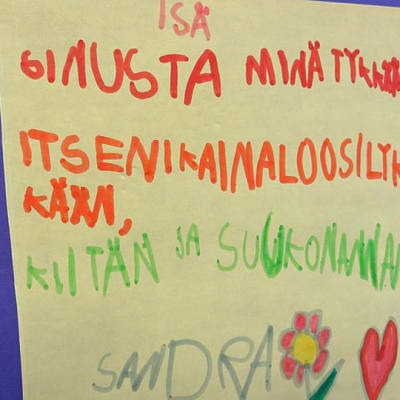 ISÄ
SINUSTA MINÄ TYKKÄÄ
ITSENI KAINALOOSI LYK
KÄÄN,
KIITÄN JA SUUKON ANNA
SANDRA